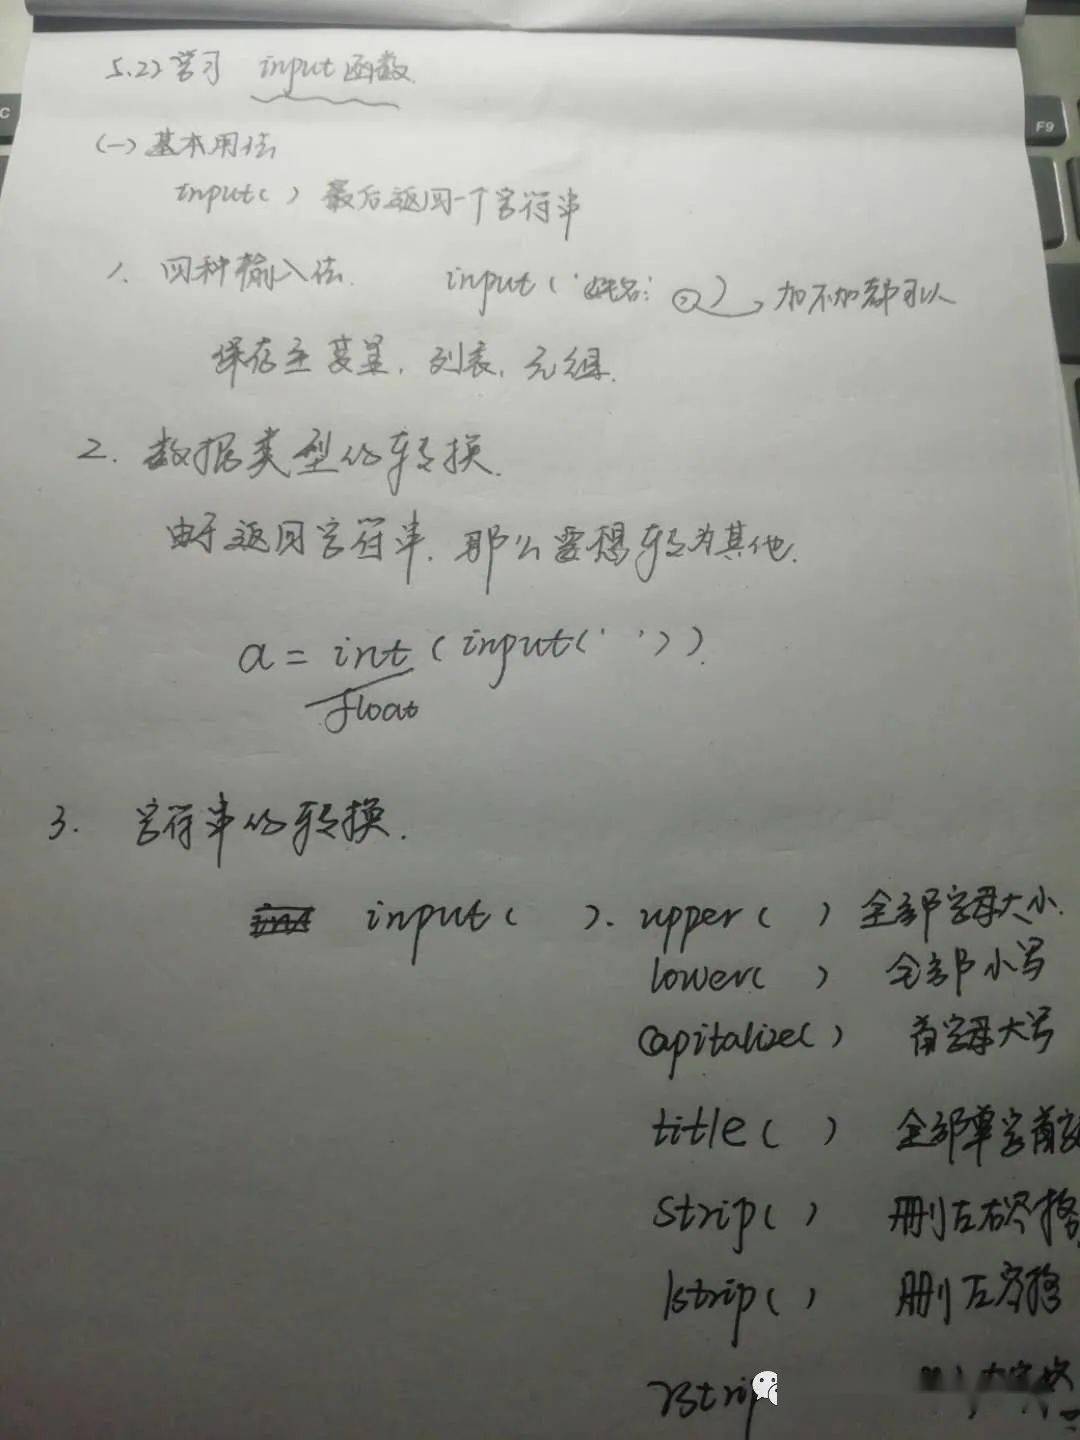 C
F9
5.22学习 input函数.
(一)基本用法
input( ) 最后返回一个字符串
1. 四种输入法. input('姓名: ) 加不加都可以
保存至变量, 列表, 元组.
2. 数据类型的转换.
由于返回字符串, 那么要想转为其他.
a = int (input(' ')).
float
3. 字符串的转换.
input( ). upper( ) 全部字母大小.
lower( ) 全部小写
capitalize( ) 首字母大写
title( ) 全部单字首
strip( ) 删左右空格
lstrip( ) 删左空格
rstrip